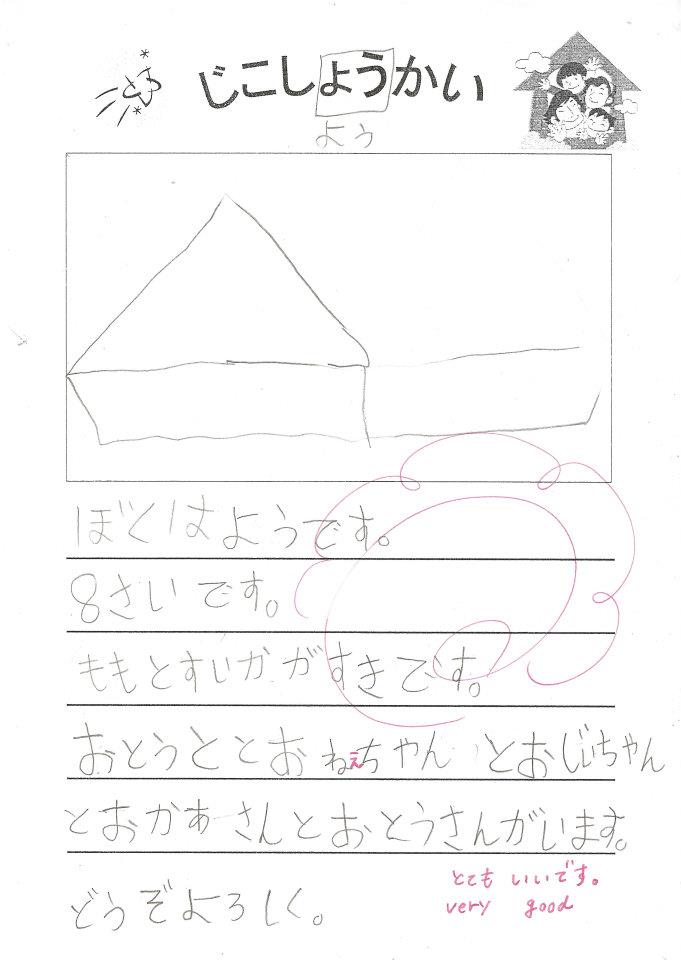 じこしょうかい
よう
ぼくはようです。
8さいです。
ももとすいかがすきです。
おとうととおねえちゃんとおじいちゃん
とおかあさんとおとうさんがいます。
どうぞよろしく。
とても いいです。
very good